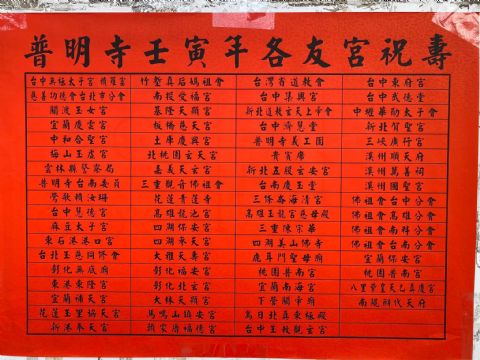 普明寺壬寅年各友宮祝壽
台中無極太子宮 精羅宮 竹塹真后媽祖會 台灣省道教會 台中東府宮
慈善功德會台北市分會 南投受福宮 台中集興宮 台中武德堂
關渡玉女宮 基隆天顯宮 新北道教玄天上帝會 中壢華勛太子會
宜蘭慶雲宮 板橋慈天宮 台中濟慧堂 新北賀聖宮
中和合聖宮 土庫慶興宮 普明寺義工團 三峽廣行宮
梅山玉虛宮 北桃園玄天宮 貴賓席 溪州順天府
雲林縣警察局 嘉義天玄宮 新北五股玄安宮 溪州萬善祠
普明寺台南委員 三重觀音佛祖會 台南慶玉堂 溪州國聖宮
鶯歌賴汝珊 花蓮青蓮寺 三條崙海清宮 佛祖會台中分會
台中慧德宮 高雄龍池宮 高雄玉龍宮慈母殿 佛祖會高雄分會
麻豆太子宮 四湖保安宮 三重陳宗華 佛祖會南科分會
東石港港口宮 四湖奉天宮 四湖美山佛寺 佛祖會台南分會
台北玉慈同修會 大雅天壽宮 鹿耳門聖母廟 宜蘭保安宮
彰化無底廟 彰化福安宮 桃園普南宮 桃園普南宮
東港東隆宮 彰化玄安宮 宜蘭南海宮 八里紫皇天乙真慶宮
宜蘭補天宮 大林天顯宮 下營關帝廟 南鯤鯓代天府
花蓮玉里協天宮 馬鳴山鎮安宮 烏日北真東極殿
新港奉天宮 福德宮 台中玉敕觀玄宮